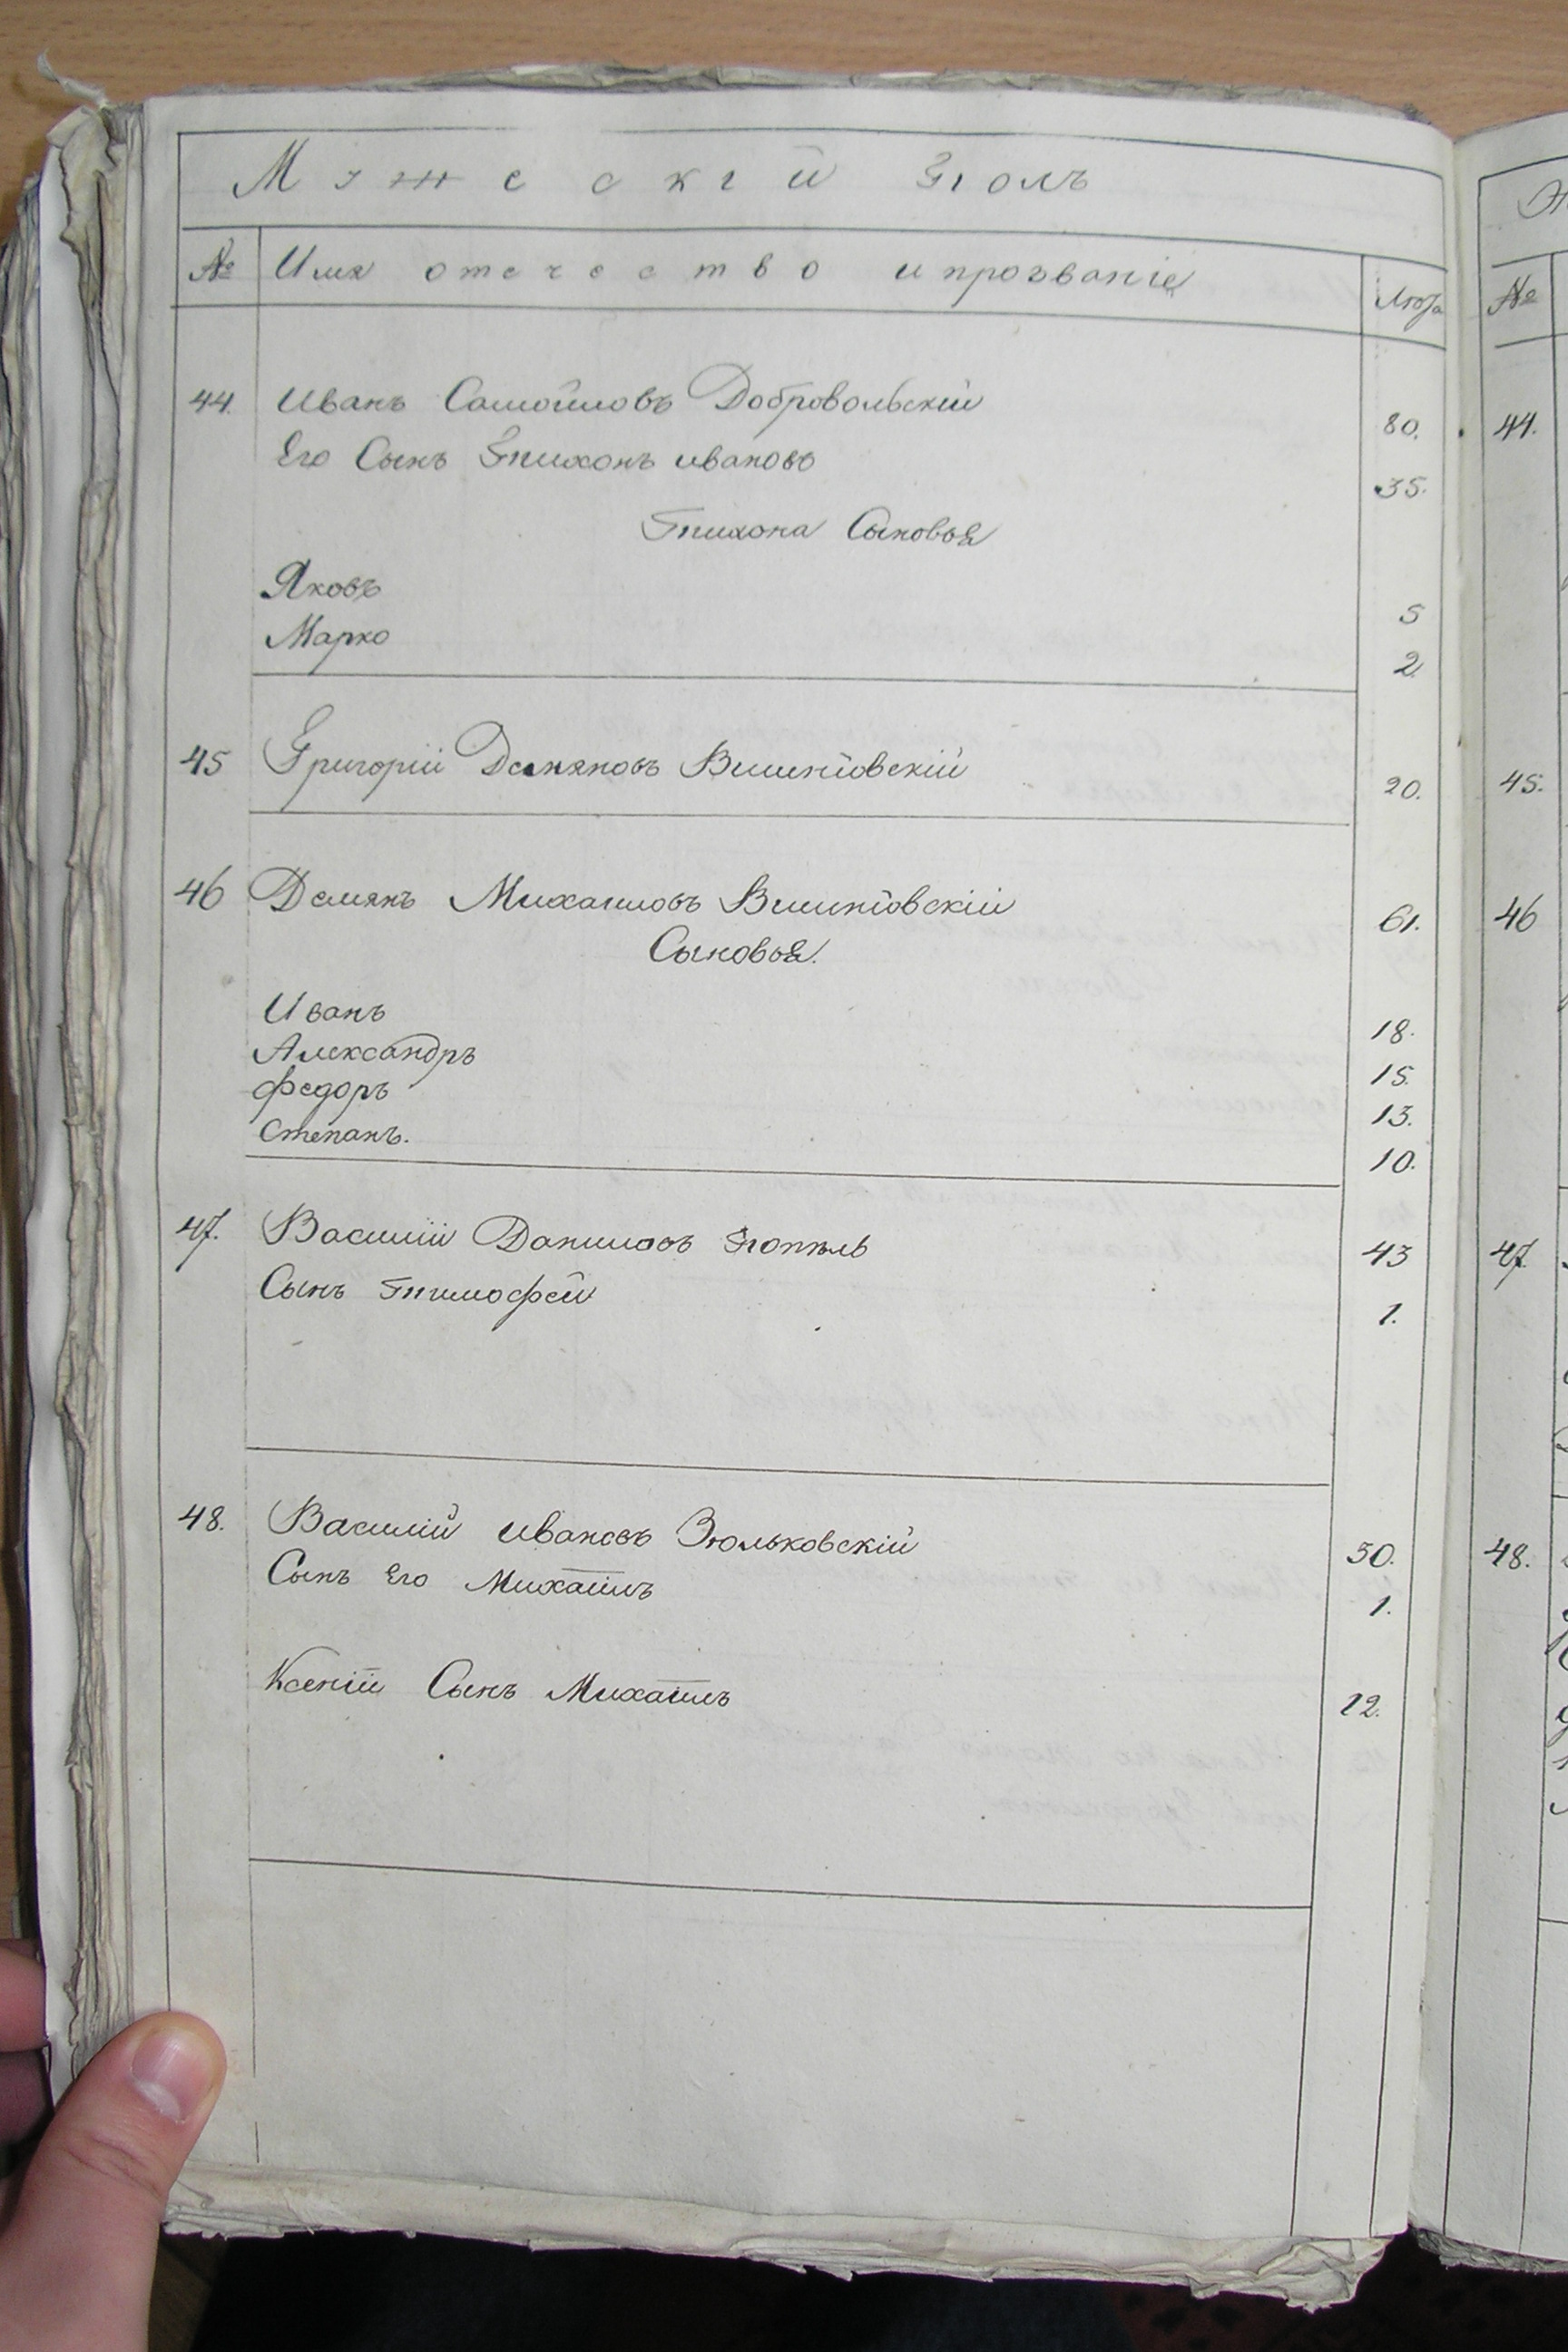 Мужескій Полъ
№ Имя отечество и прозваніе Лѣта №
44. Иванъ Самойловъ Добровольскій 80. 44.
Его Сынъ Тихонъ Ивановъ 35.
Тихона Сыновья
Яковъ 5
Марко 2
45 Григорій Демяновъ 20. 45.
46 Демянъ Михаиловъ 61. 46
Сыновья.
Иванъ 18.
Александръ 15.
Федоръ 13.
Степанъ. 10.
47. Василій Даниловъ 43 47
Сынъ Тимофей 1.
48. Василій Ивановъ Зюльковскій 50. 48.
Сынъ Его Михаилъ 1.
Ксеніи Сынъ Михаилъ 12.